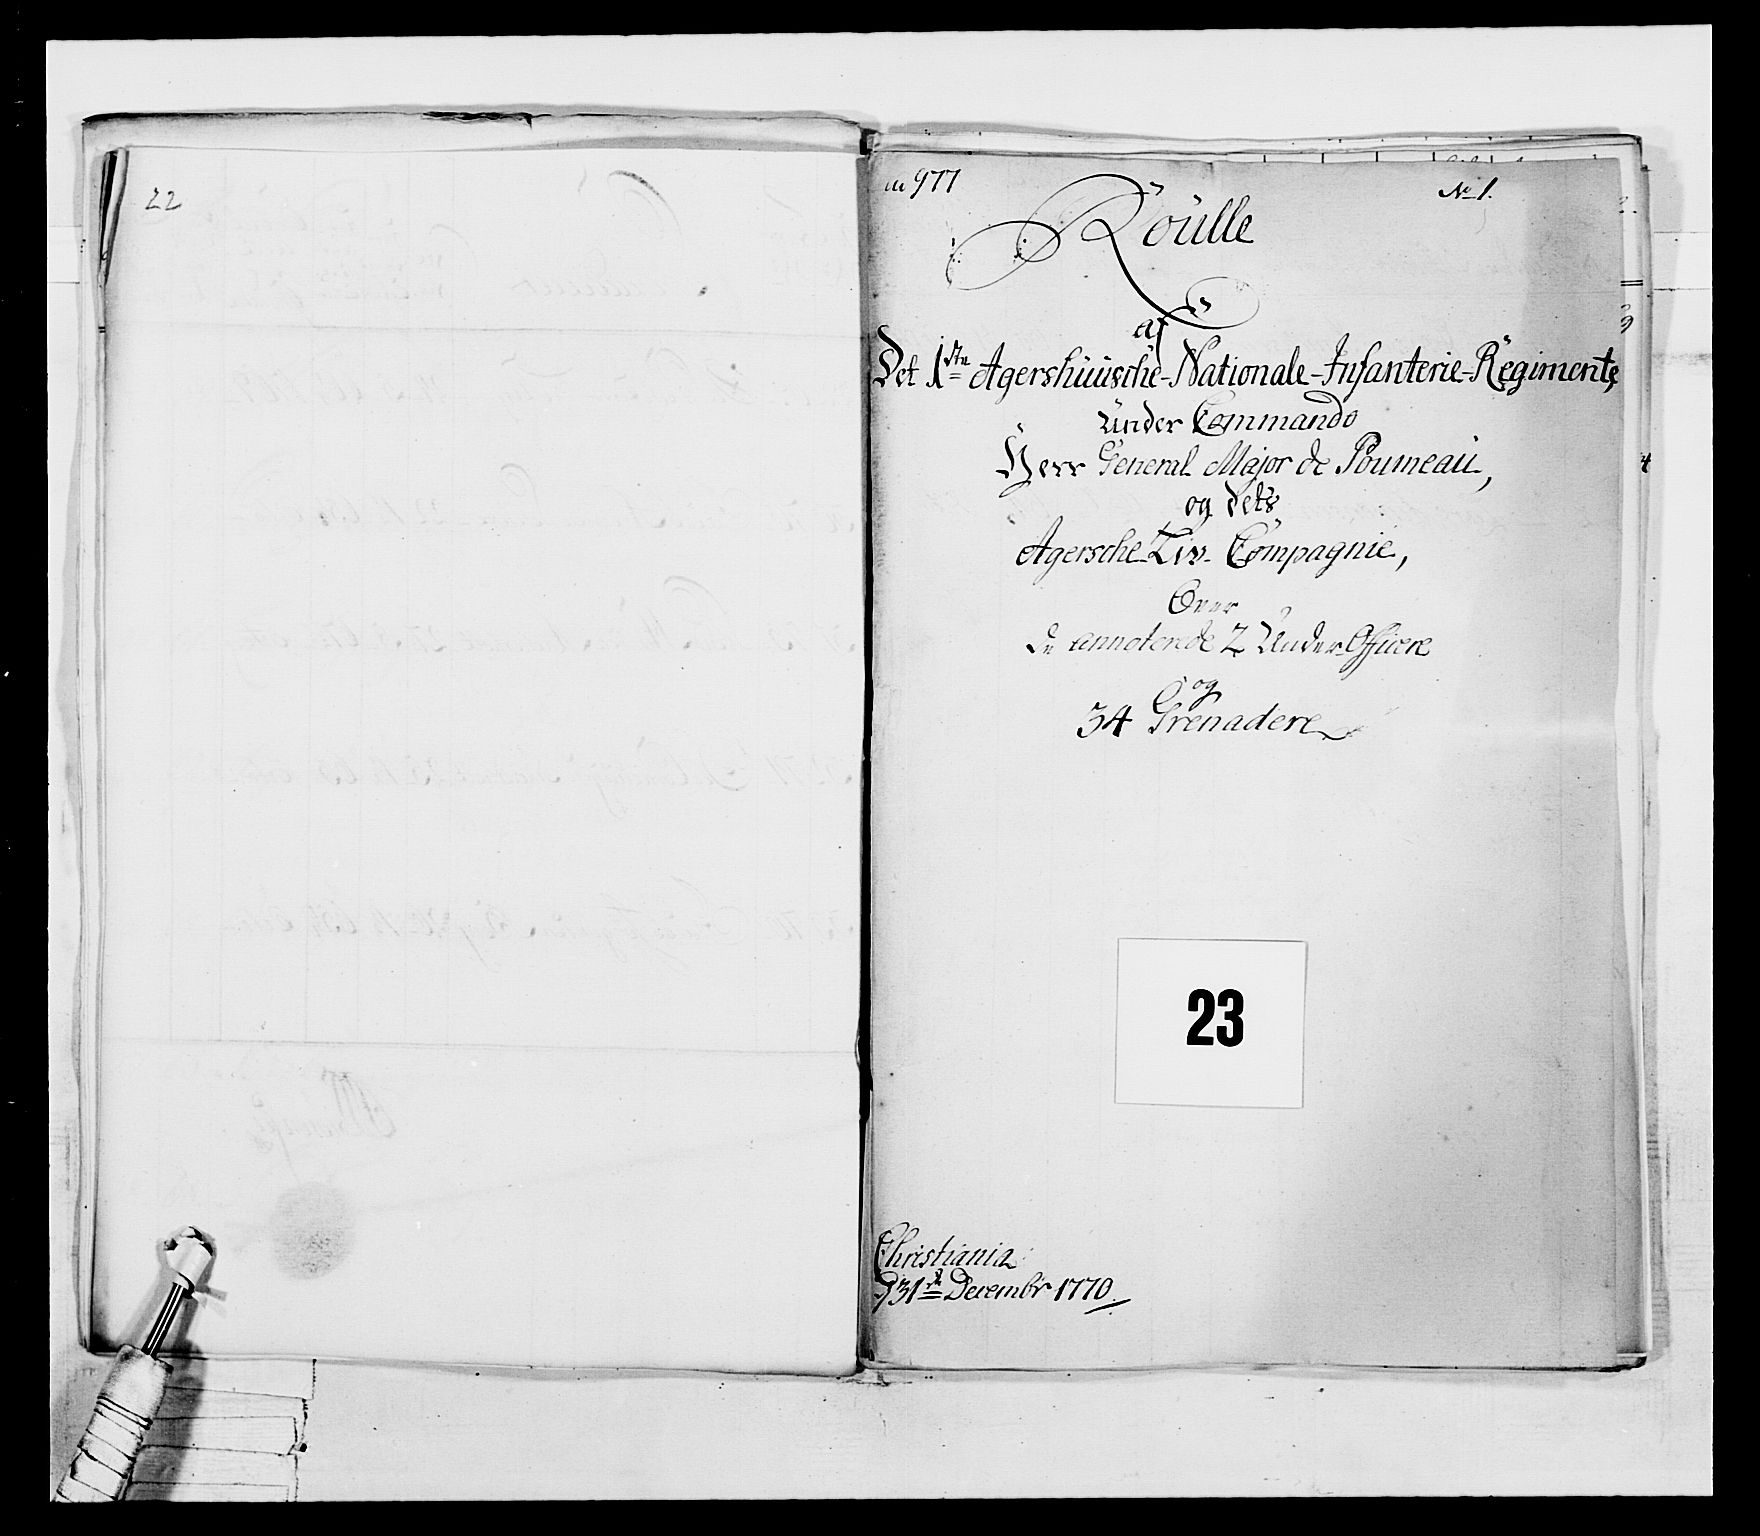 22
977
No 1.
Roülle
af
Det 1ste Agershüüsche-Nationale-Infanterie-Regiments
Ünder Commando
Herr General Major de Poumeau,
og dets
Agersche-Liv-Compagnie,
Over
de annoterede 2 Under Officere
og
34 Grenadere
23
Christiania
31te Decembr 1770.